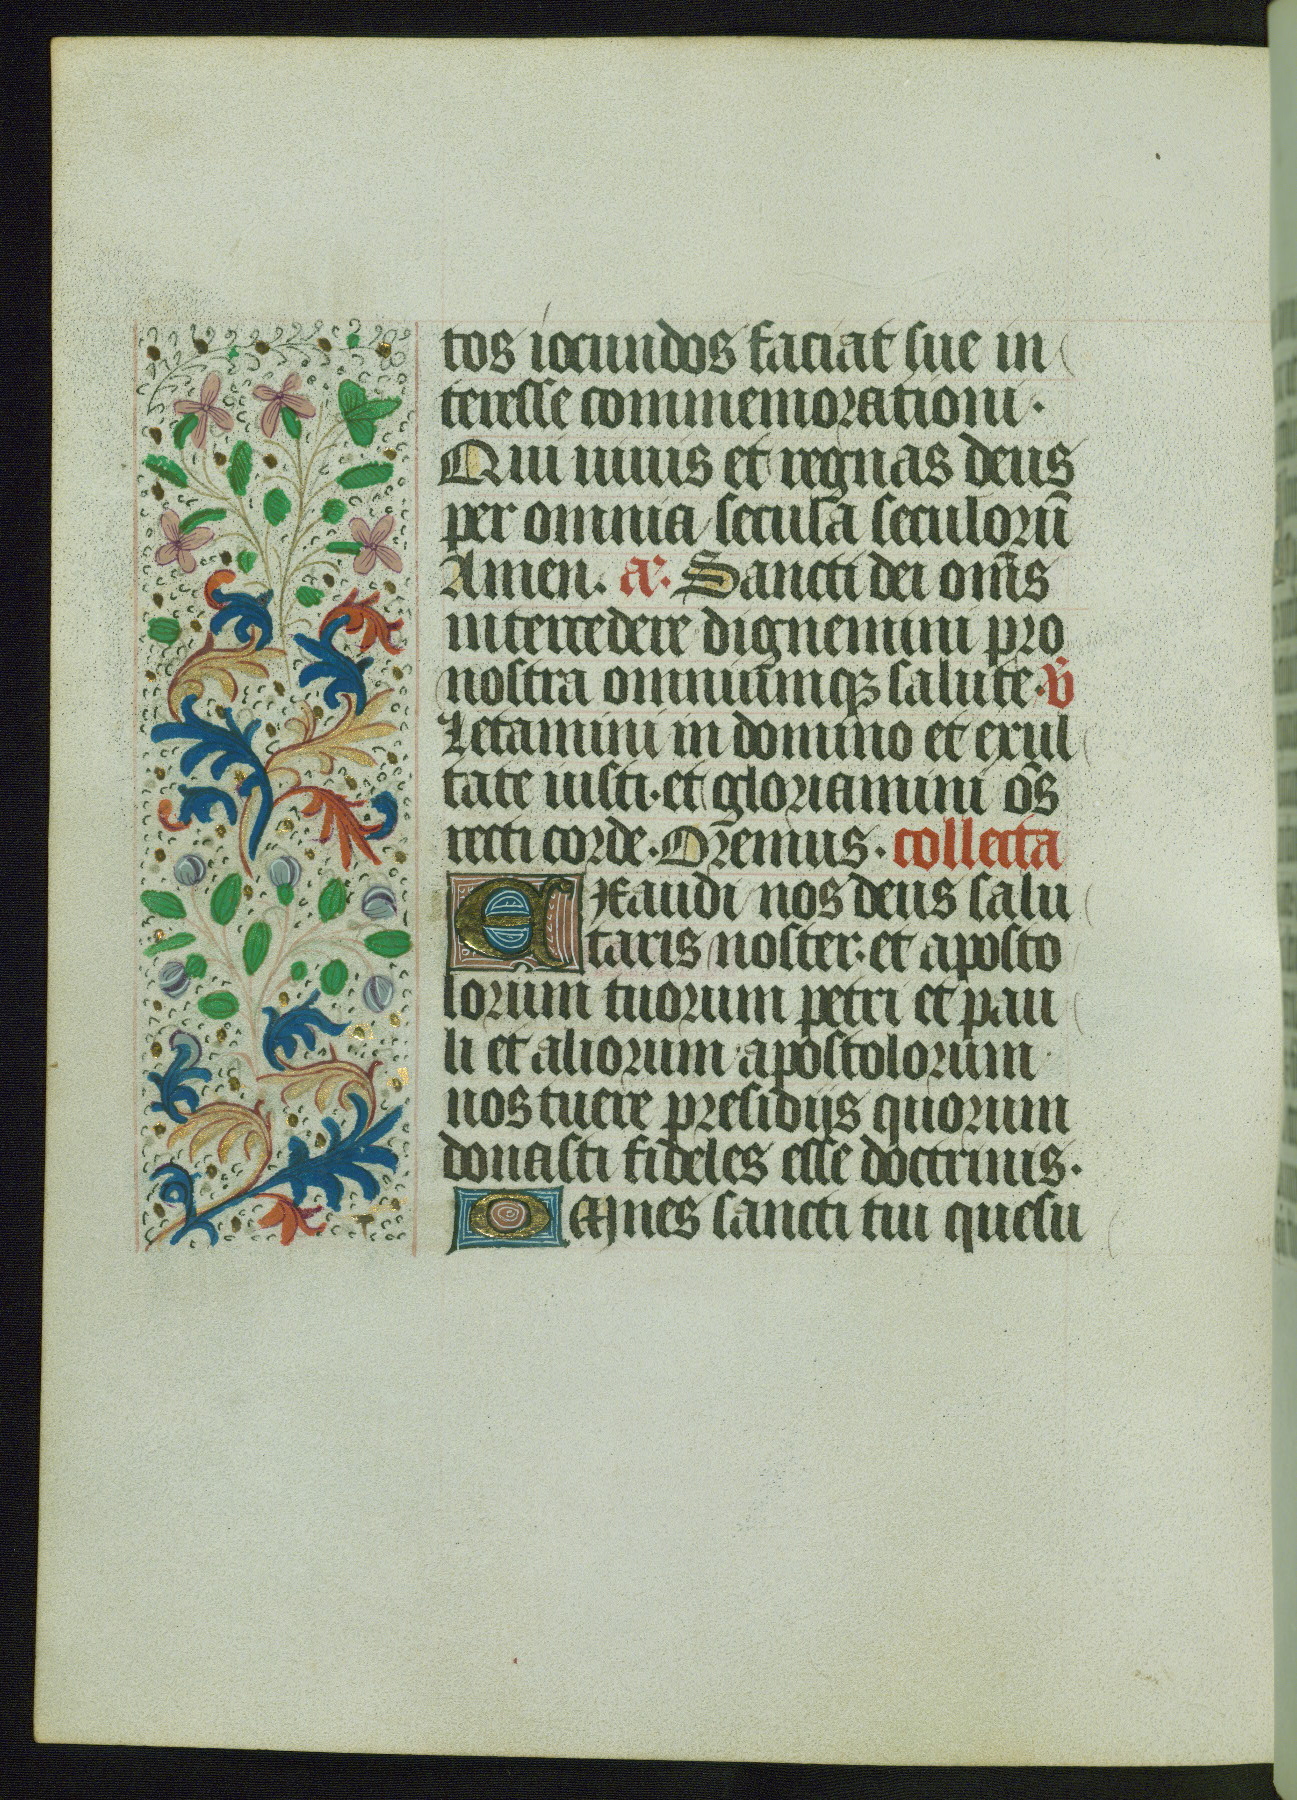 tos iocundos faciat sue in
teresse commemorationi.
Qui uiuis et regnas deus
per omnia secula seculorū
Amen. a. Sancti dei om̄s
intercedere dignemini pro
nostra omniūmqꝫ salute. v̄
Letamini in domino et exul
tate iusti. et gloriamini ōs
recti corde. Or̄emus. collecta
EXaudi nos deus salu
taris noster: et aposto
lorum tuorum petri et pau
li et aliorum apostolorum
nos tuere presidijs quorum
donasti fideles esse doctrinis.
OMnes sancti tui quesu